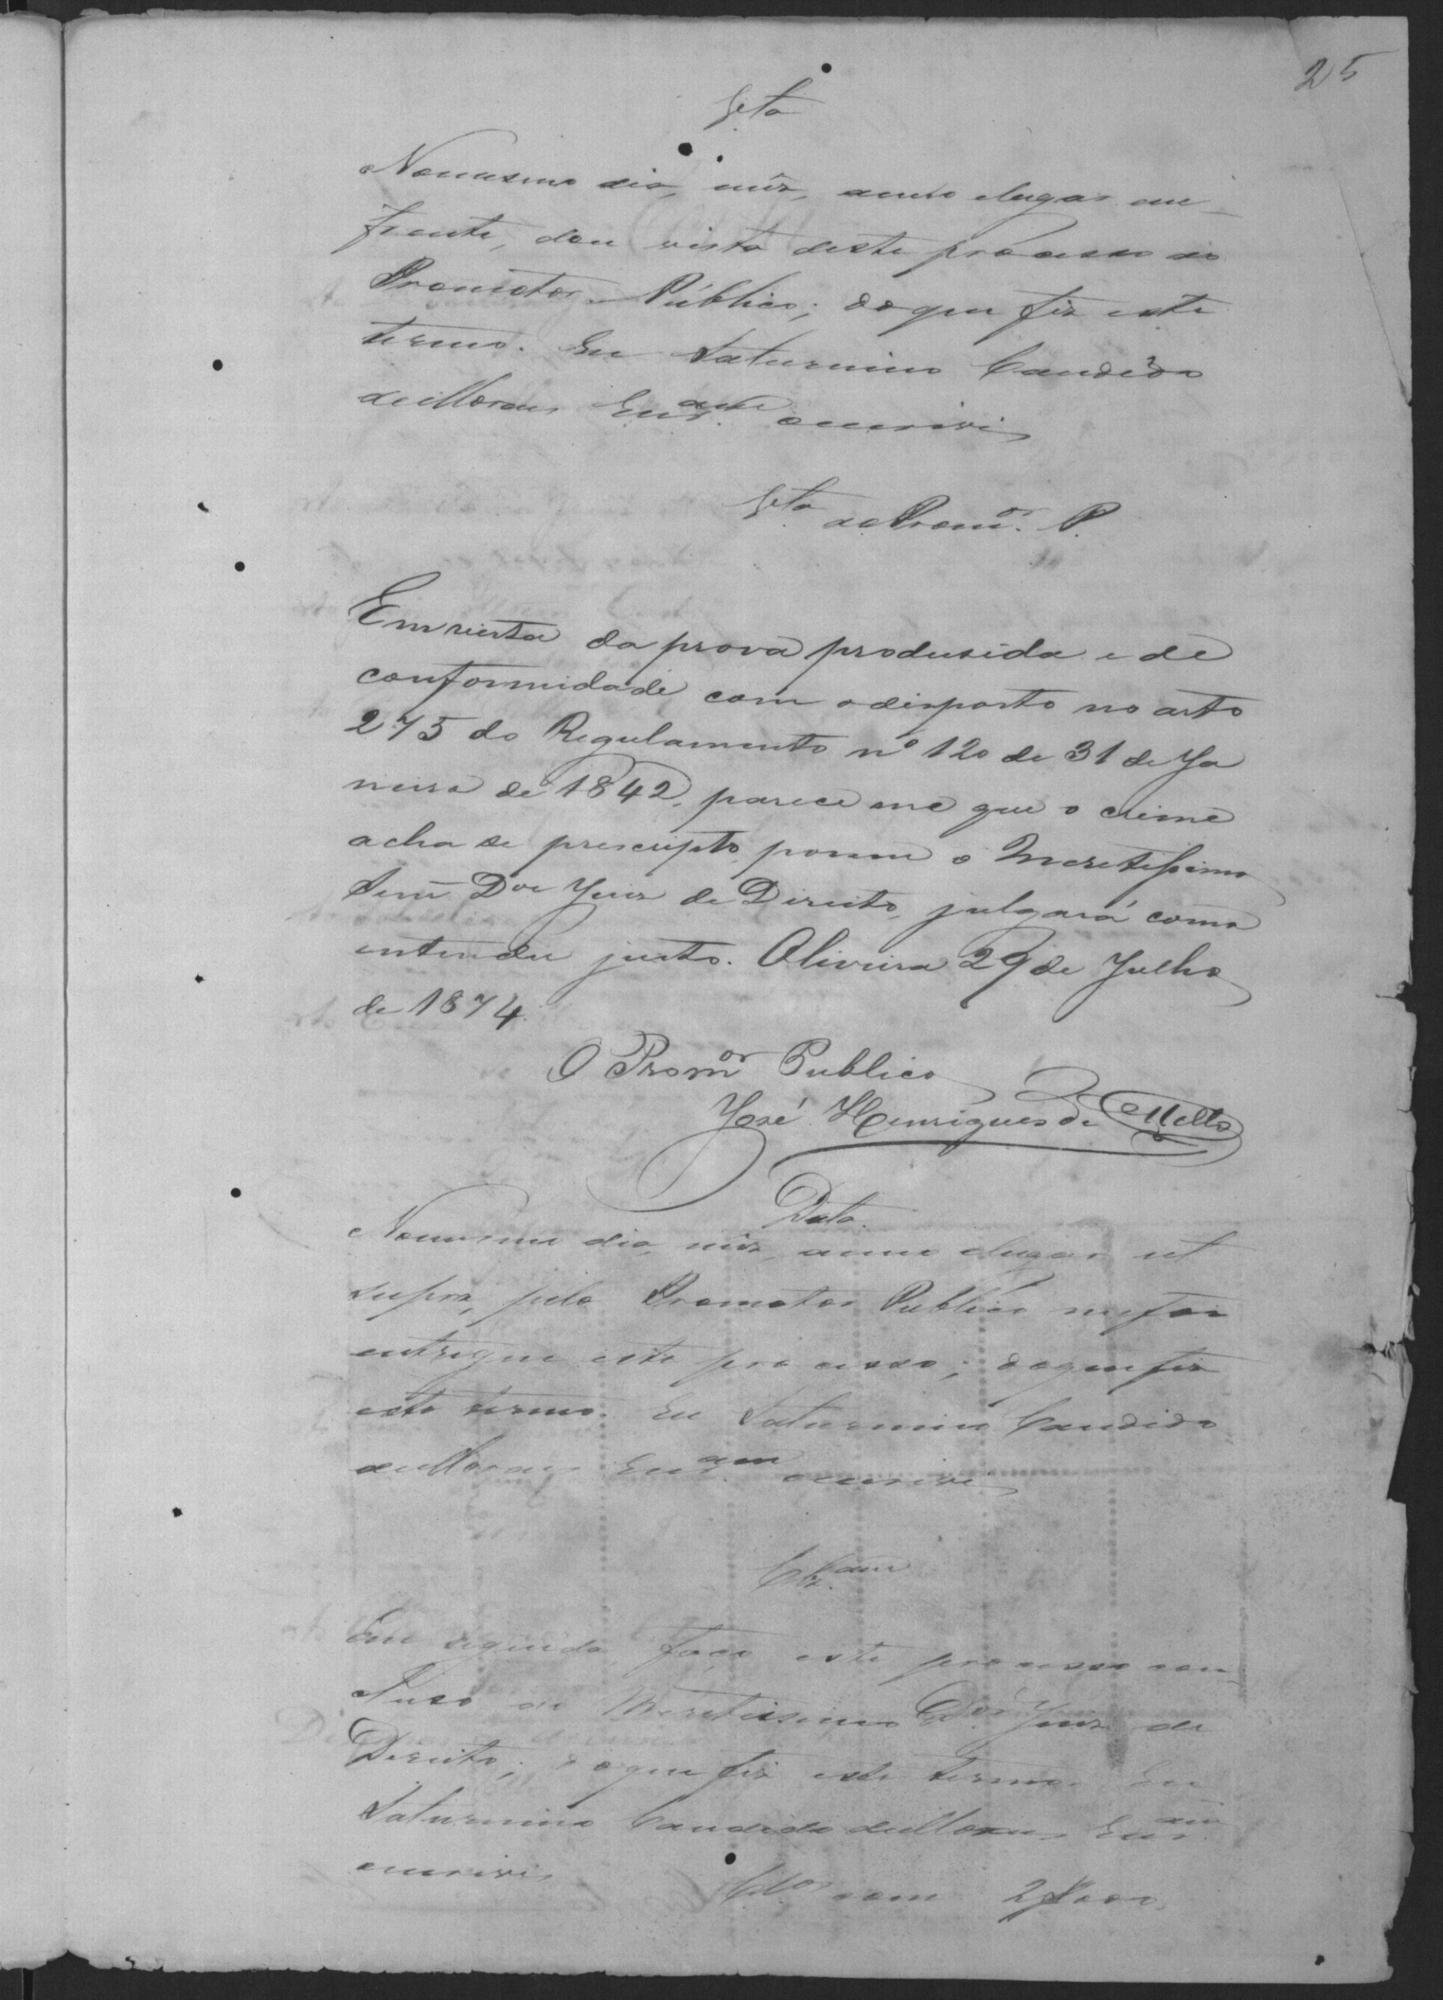 25
Vta
No mesmo dia, mês, anno e lugar em
frente, dou vista deste processo ao
Promotor Publico; do que fiz este
termo. Eu Saturnino Candido
de Moraes Escr.am o escrivi
Vta ao Prom.or P.
Em vista da prova produsida e de
conformidade com o disposto no arto
275 do Regulamento nº 120 de 31 de Ja
neiro de 1842, parece me que o crime
acha se prescripto, porem o Meretissimo
Senr Dor Juiz de Direito, julgará como
entender justo. Oliveira 29 de Julho
de 1874.
O Promor Publico
José Henriques de Mello
Data.
No mesmo dia, mês, anno e lugar ut
supra, pelo Promotor Publico me foi
entregue este processo; do que fiz
este termo. Eu Saturnino Candido
de Moraes Escr.am o escrivi
Clz.am
Em seguida faço este processo con
cluso ao Meretissimo Dor Juiz de
Direito; do que fiz este termo. Eu
Saturnino Candido de Moraes Escr.am
o escrivi
Cl.os com